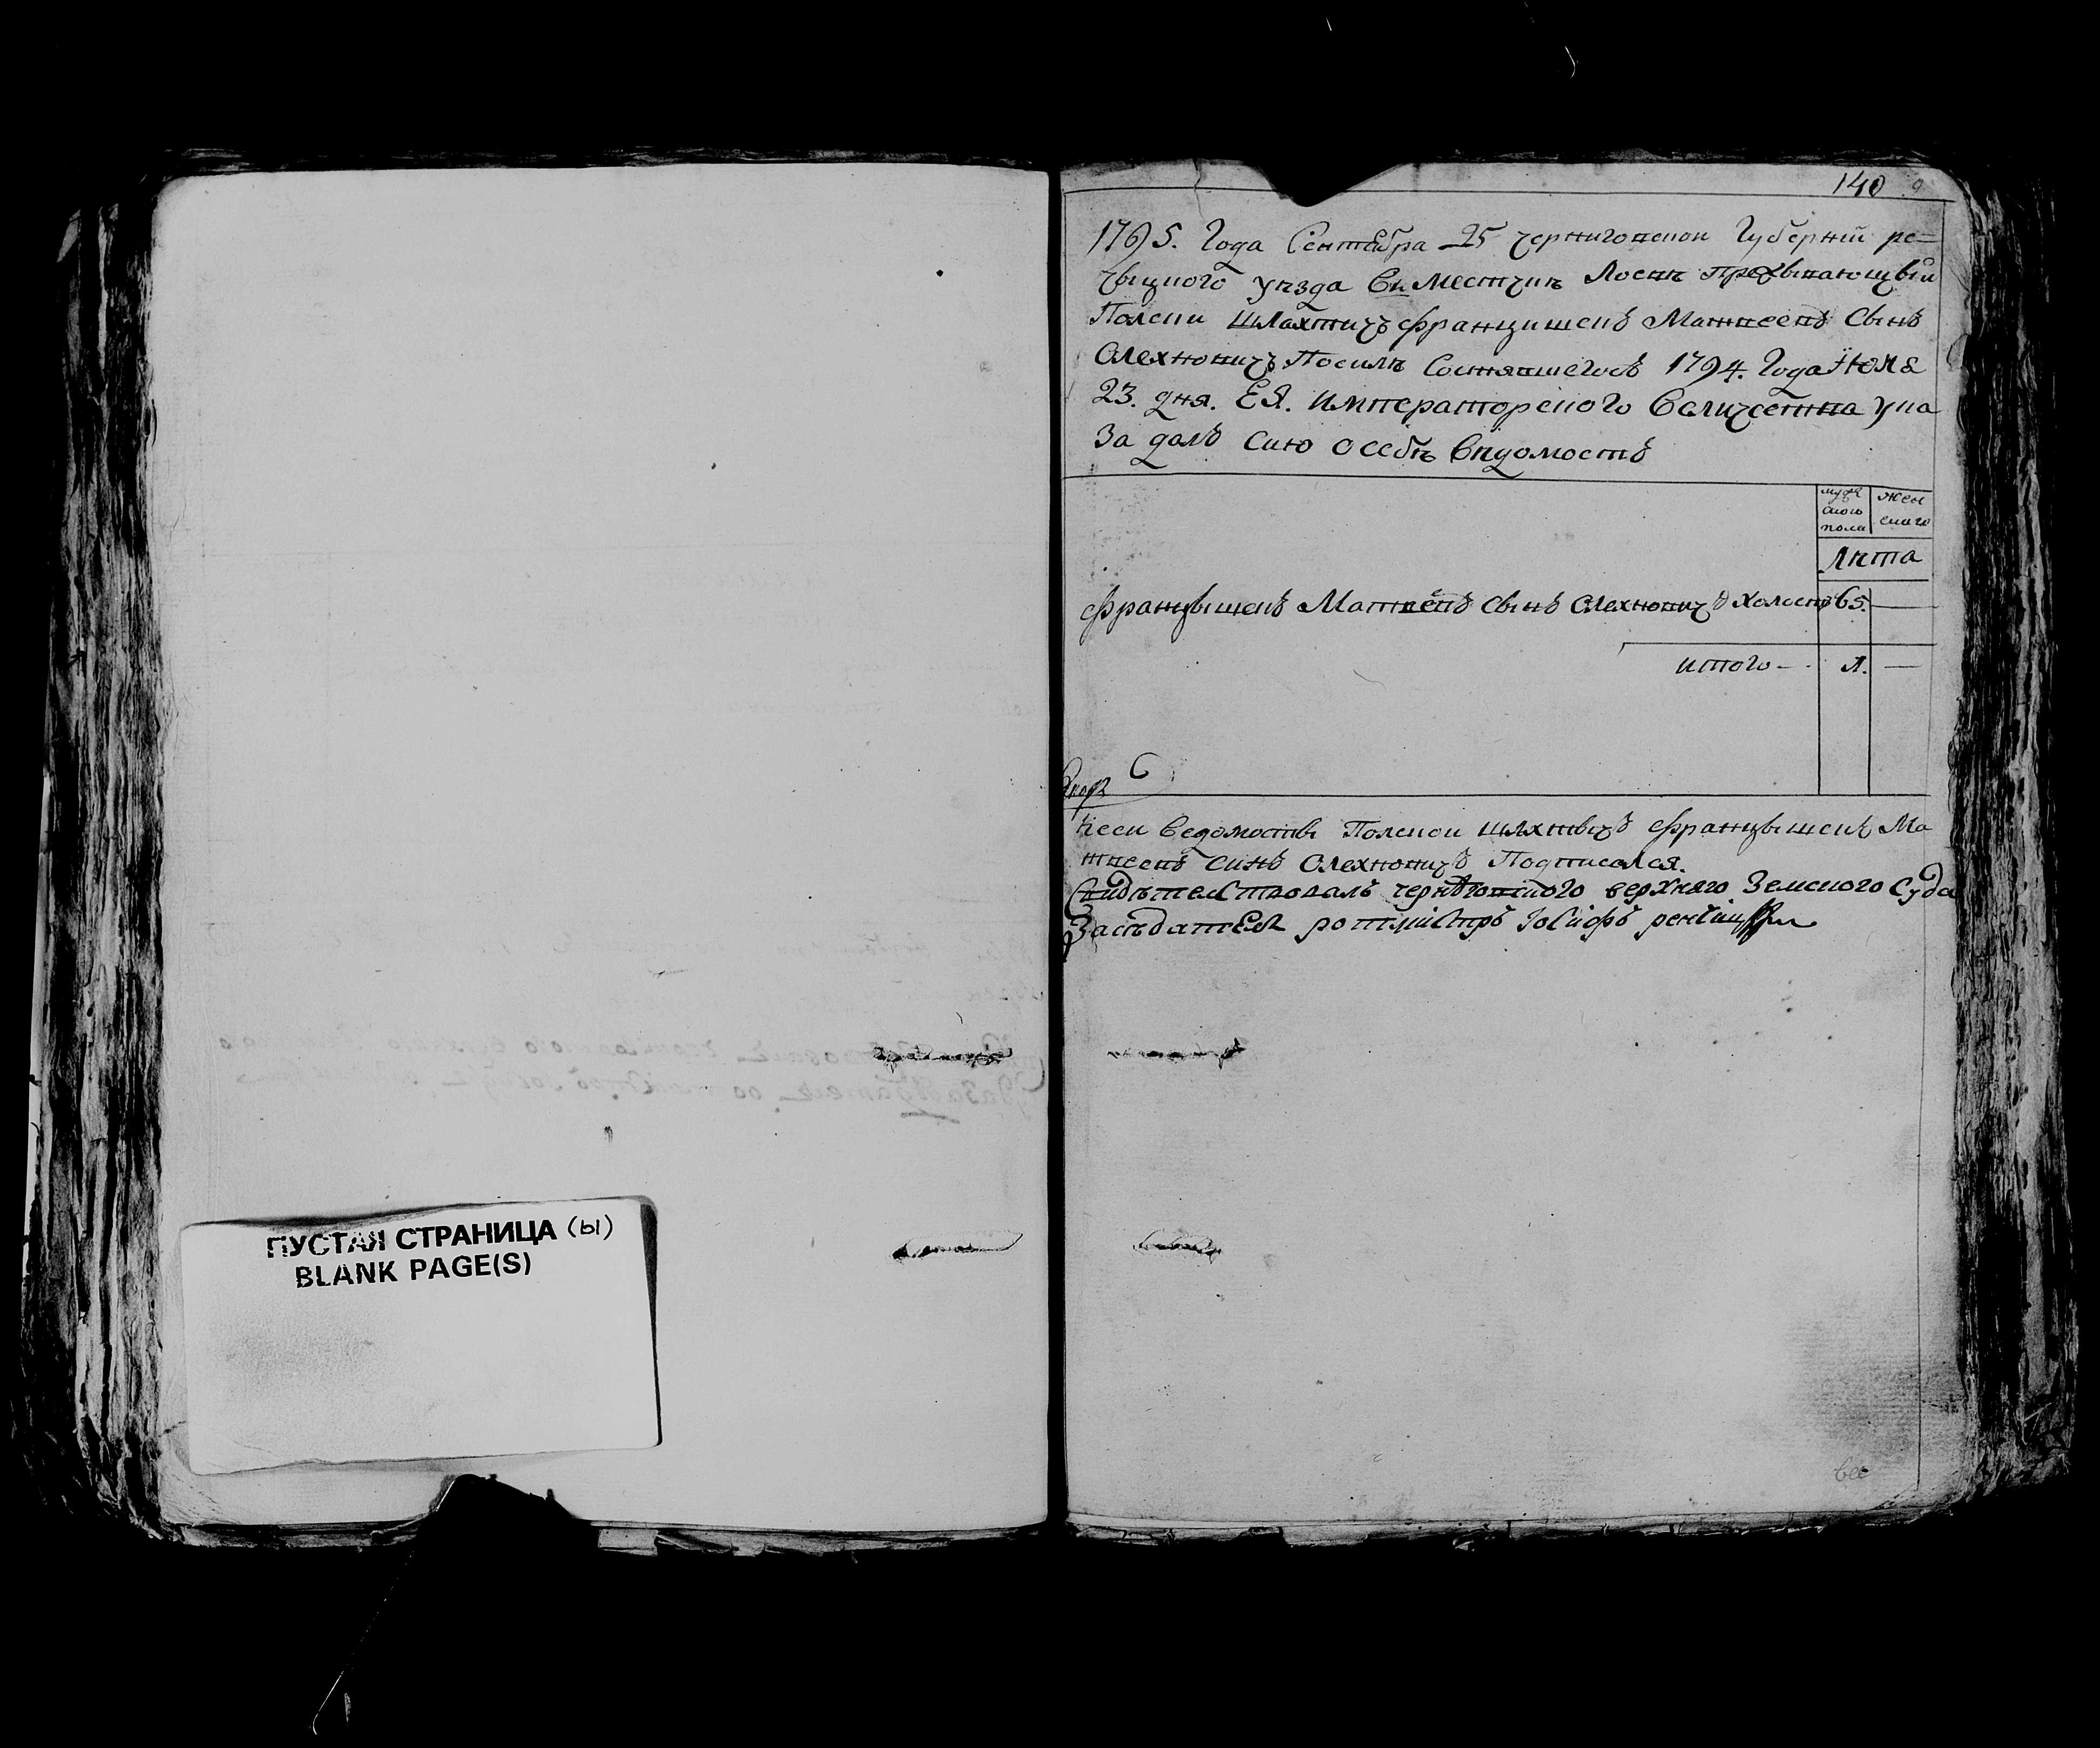 ПУСТАЯ СТРАНИЦА (ы)
BLANK PAGE(S)
140
1795. Года Сентебра 25 черниговской Губерніи ре=
чвицкого уѣзда Вѣ Местчкѣ Лоевѣ Пребывающый
Полски шляхтичъ францишекъ Матвеевъ Сынъ
Олехновичъ Посилѣ Состоявшегось 1794. Года Июля
23. дня. ЕЯ. императорского Величества ука
за далъ сию о себѣ вѣдомость
муже ского пола
жен ского
лѣта
францышекъ Матвеевъ сынъ Олехновичъ холостъ 65. —
итого — 1. —
К сеи ведомости Полской шляхтычъ францышекъ Ма
твеевъ синъ Олехновичъ Подписался.
Свидѣтелствовалъ чернѣговского верхняго Земского Суда
Засѣдателъ ротмистръ Іосифъ